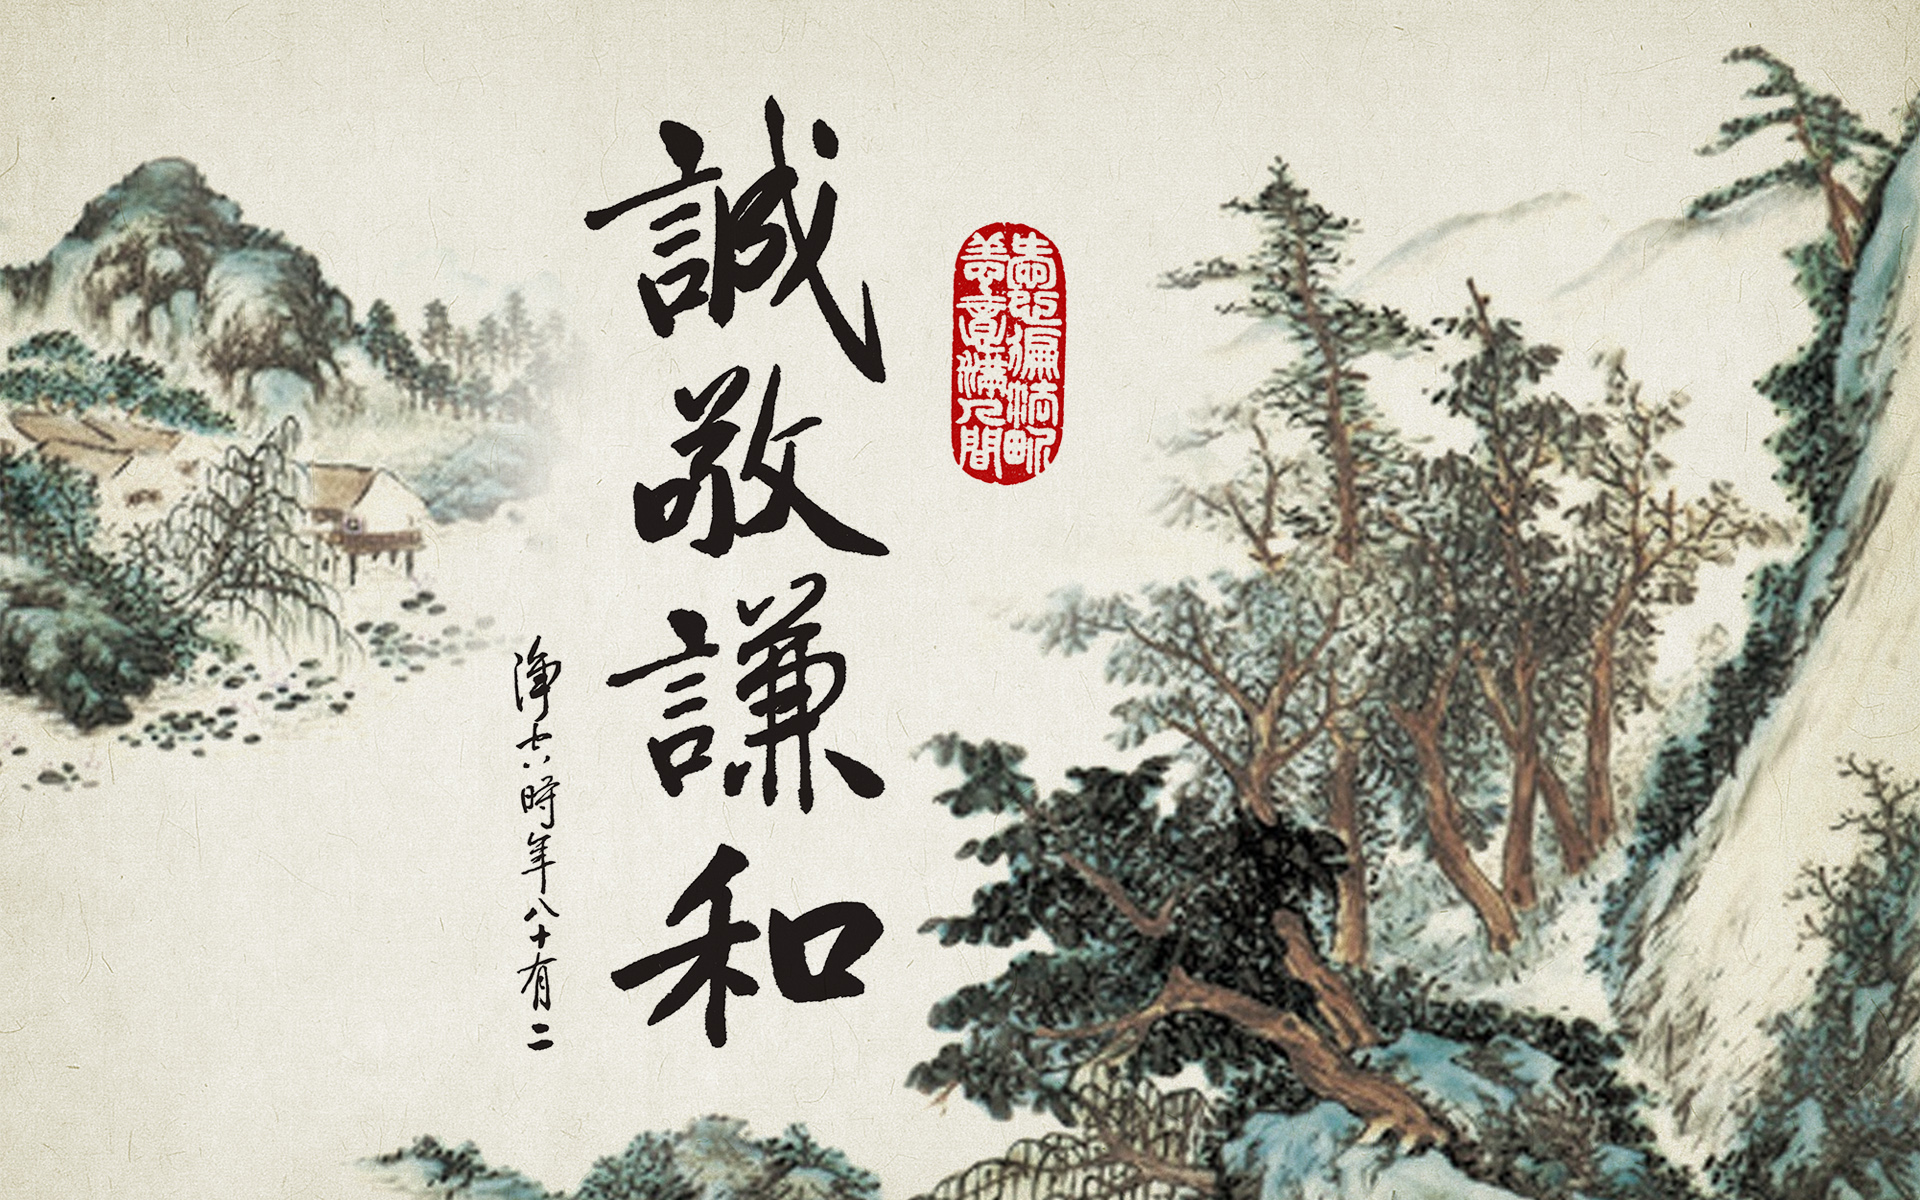 徧法界
善意滿人間
誠敬謙和
淨空時年八十有二